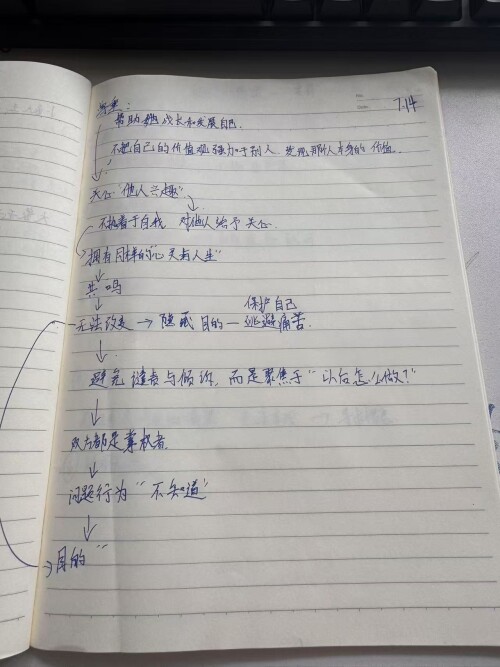 7.14
尊重：
帮助她成长和发展自己.
不把自己的价值观强加于别人，发现那个人本身的价值.
关心“他人兴趣”.
不执着于自我 对他人给予关心.
“拥有同样的“心灵与人生”
共鸣
保护自己
无法改变 → 隐藏目的 — 逃避痛苦.
避免谴责与倾诉，而是聚焦于“以后怎么做？”
双方都是掌权者.
问题行为“不知道”
目的“